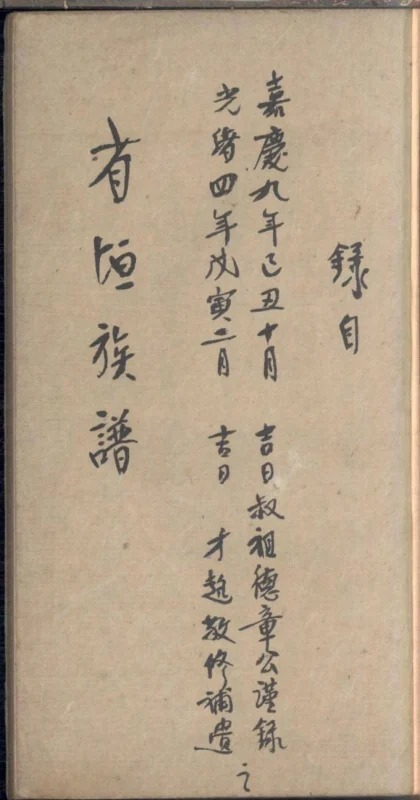 録自
嘉慶九年己丑十月 吉日叔祖德章公謹録
光緒四年戊寅二月 吉日 才起敬修補遺之
省垣族譜